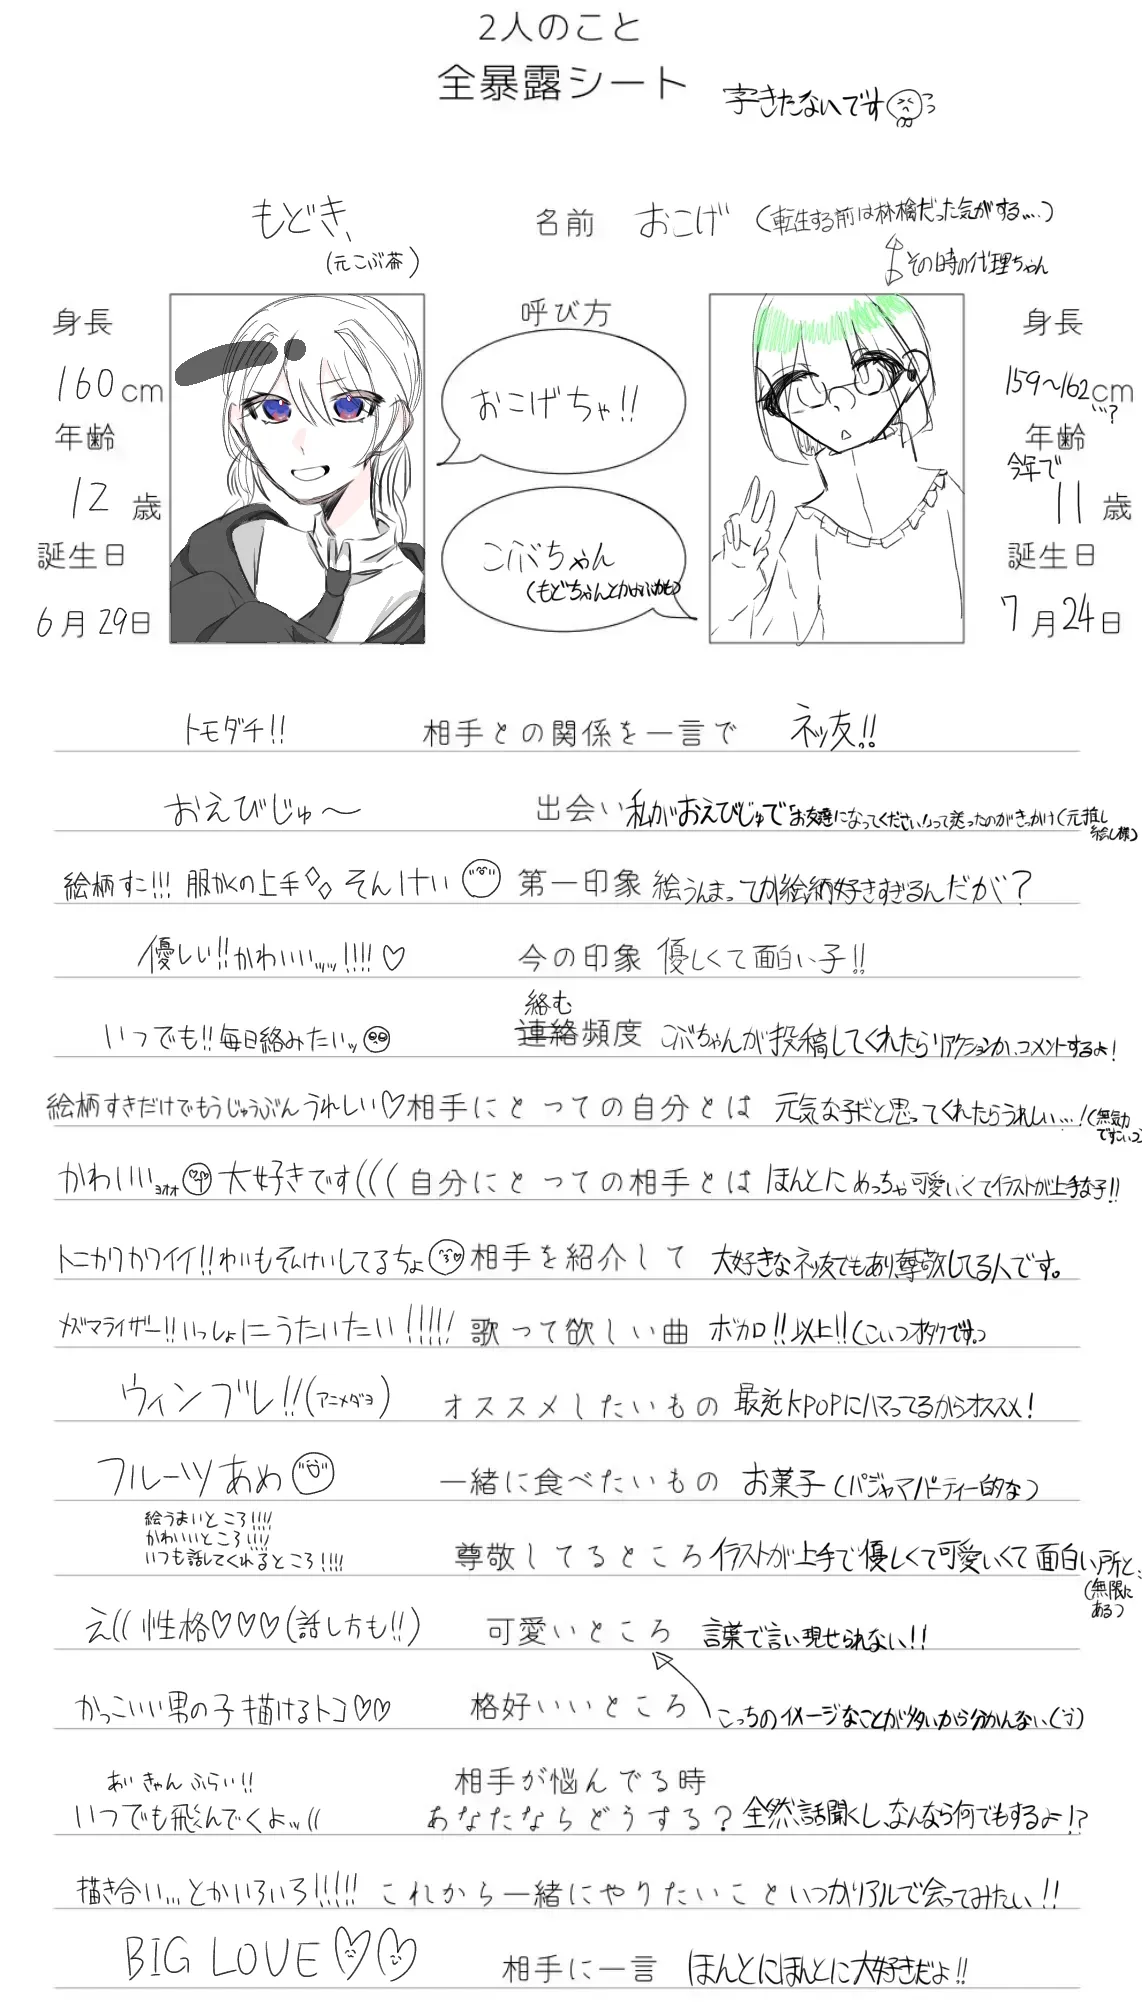 2人のこと
全暴露シート
字きたないです
もどき、
(元こぶ茶)
名前
おこげ (転生する前は林檎だった気がする....)
その時の代理ちゃん
身長
160cm
年齢
12歳
誕生日
6月29日
呼び方
おこげちゃ!!
こぶちゃん
(もどちゃんとかよぶかも)
身長
159〜162cm
...?
年齢
今年で
11歳
誕生日
7月24日
トモダチ!! 相手との関係を一言で ネッ友!!
おえびじゅ〜 出会い 私がおえびじゅで「お友達になってください!」って送ったのがきっかけ(元推し絵し様)
絵柄すこ!!! 服かくの上手◇◇ そんけい 第一印象 絵うんまってか絵柄好きすぎるんだが?
優しい!!かわいいッッ!!!!♡ 今の印象 優しくて面白い子!!
絡む
いつでも!!毎日絡みたいッ 連絡頻度 こぶちゃんが投稿してくれたらリアクションか、コメントするよ!
絵柄すきだけでもうじゅうぶんうれしい♡ 相手にとっての自分とは 元気な子だと思ってくれたらうれしい...!(無気力ですこいつ)
かわいいヨオオ 大好きです((( 自分にとっての相手とは ほんとにめっちゃ可愛いくてイラストが上手な子!!
トニカクカワイイ!!わいもそんけいしてるちょ 相手を紹介して 大好きなネッ友でもあり尊敬してる人です。
メズマライザー!!いっしょにうたいたい!!!!! 歌って欲しい曲 ボカロ!!以上!!(こいつオタクです。)
ウィンブレ!!(アニメダヨ) オススメしたいもの 最近KPOPにハマってるからオススメ!
フルーツあめ 一緒に食べたいもの お菓子(パジャマパーティー的な)
絵うまいところ!!!!
かわいいところ!!!!
いつも話してくれるところ!!!!
尊敬してるところ イラストが上手で優しくて可愛いくて面白い所と、(無限にある)
え(( 性格♡♡♡(話し方も!!) 可愛いところ 言葉で言い現せられない!!
かっこいい男の子描けるトコ♡♡ 格好いいところ こっちのイメージなことが多いから分かんない、
あい きゃん ふらい!! 相手が悩んでる時
いつでも飛んでくよッ(( あなたならどうする? 全然話聞くし、なんなら何でもするよ!?
描き合い...とかいろいろ!!!!! これから一緒にやりたいこと いつかリアルで会ってみたい!!
BIG LOVE♡♡ 相手に一言 ほんとにほんとに大好きだよ!!